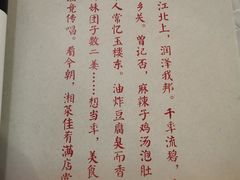 江北上，润泽我邦。千年流碧，
乡关。曾记否，麻辣子鸡汤泡肚
人常忆玉楼东。油炸豆腐臭而香
妹团子数二姜……想当年，美食
竞传唱。看今朝，湘菜佳肴满店堂